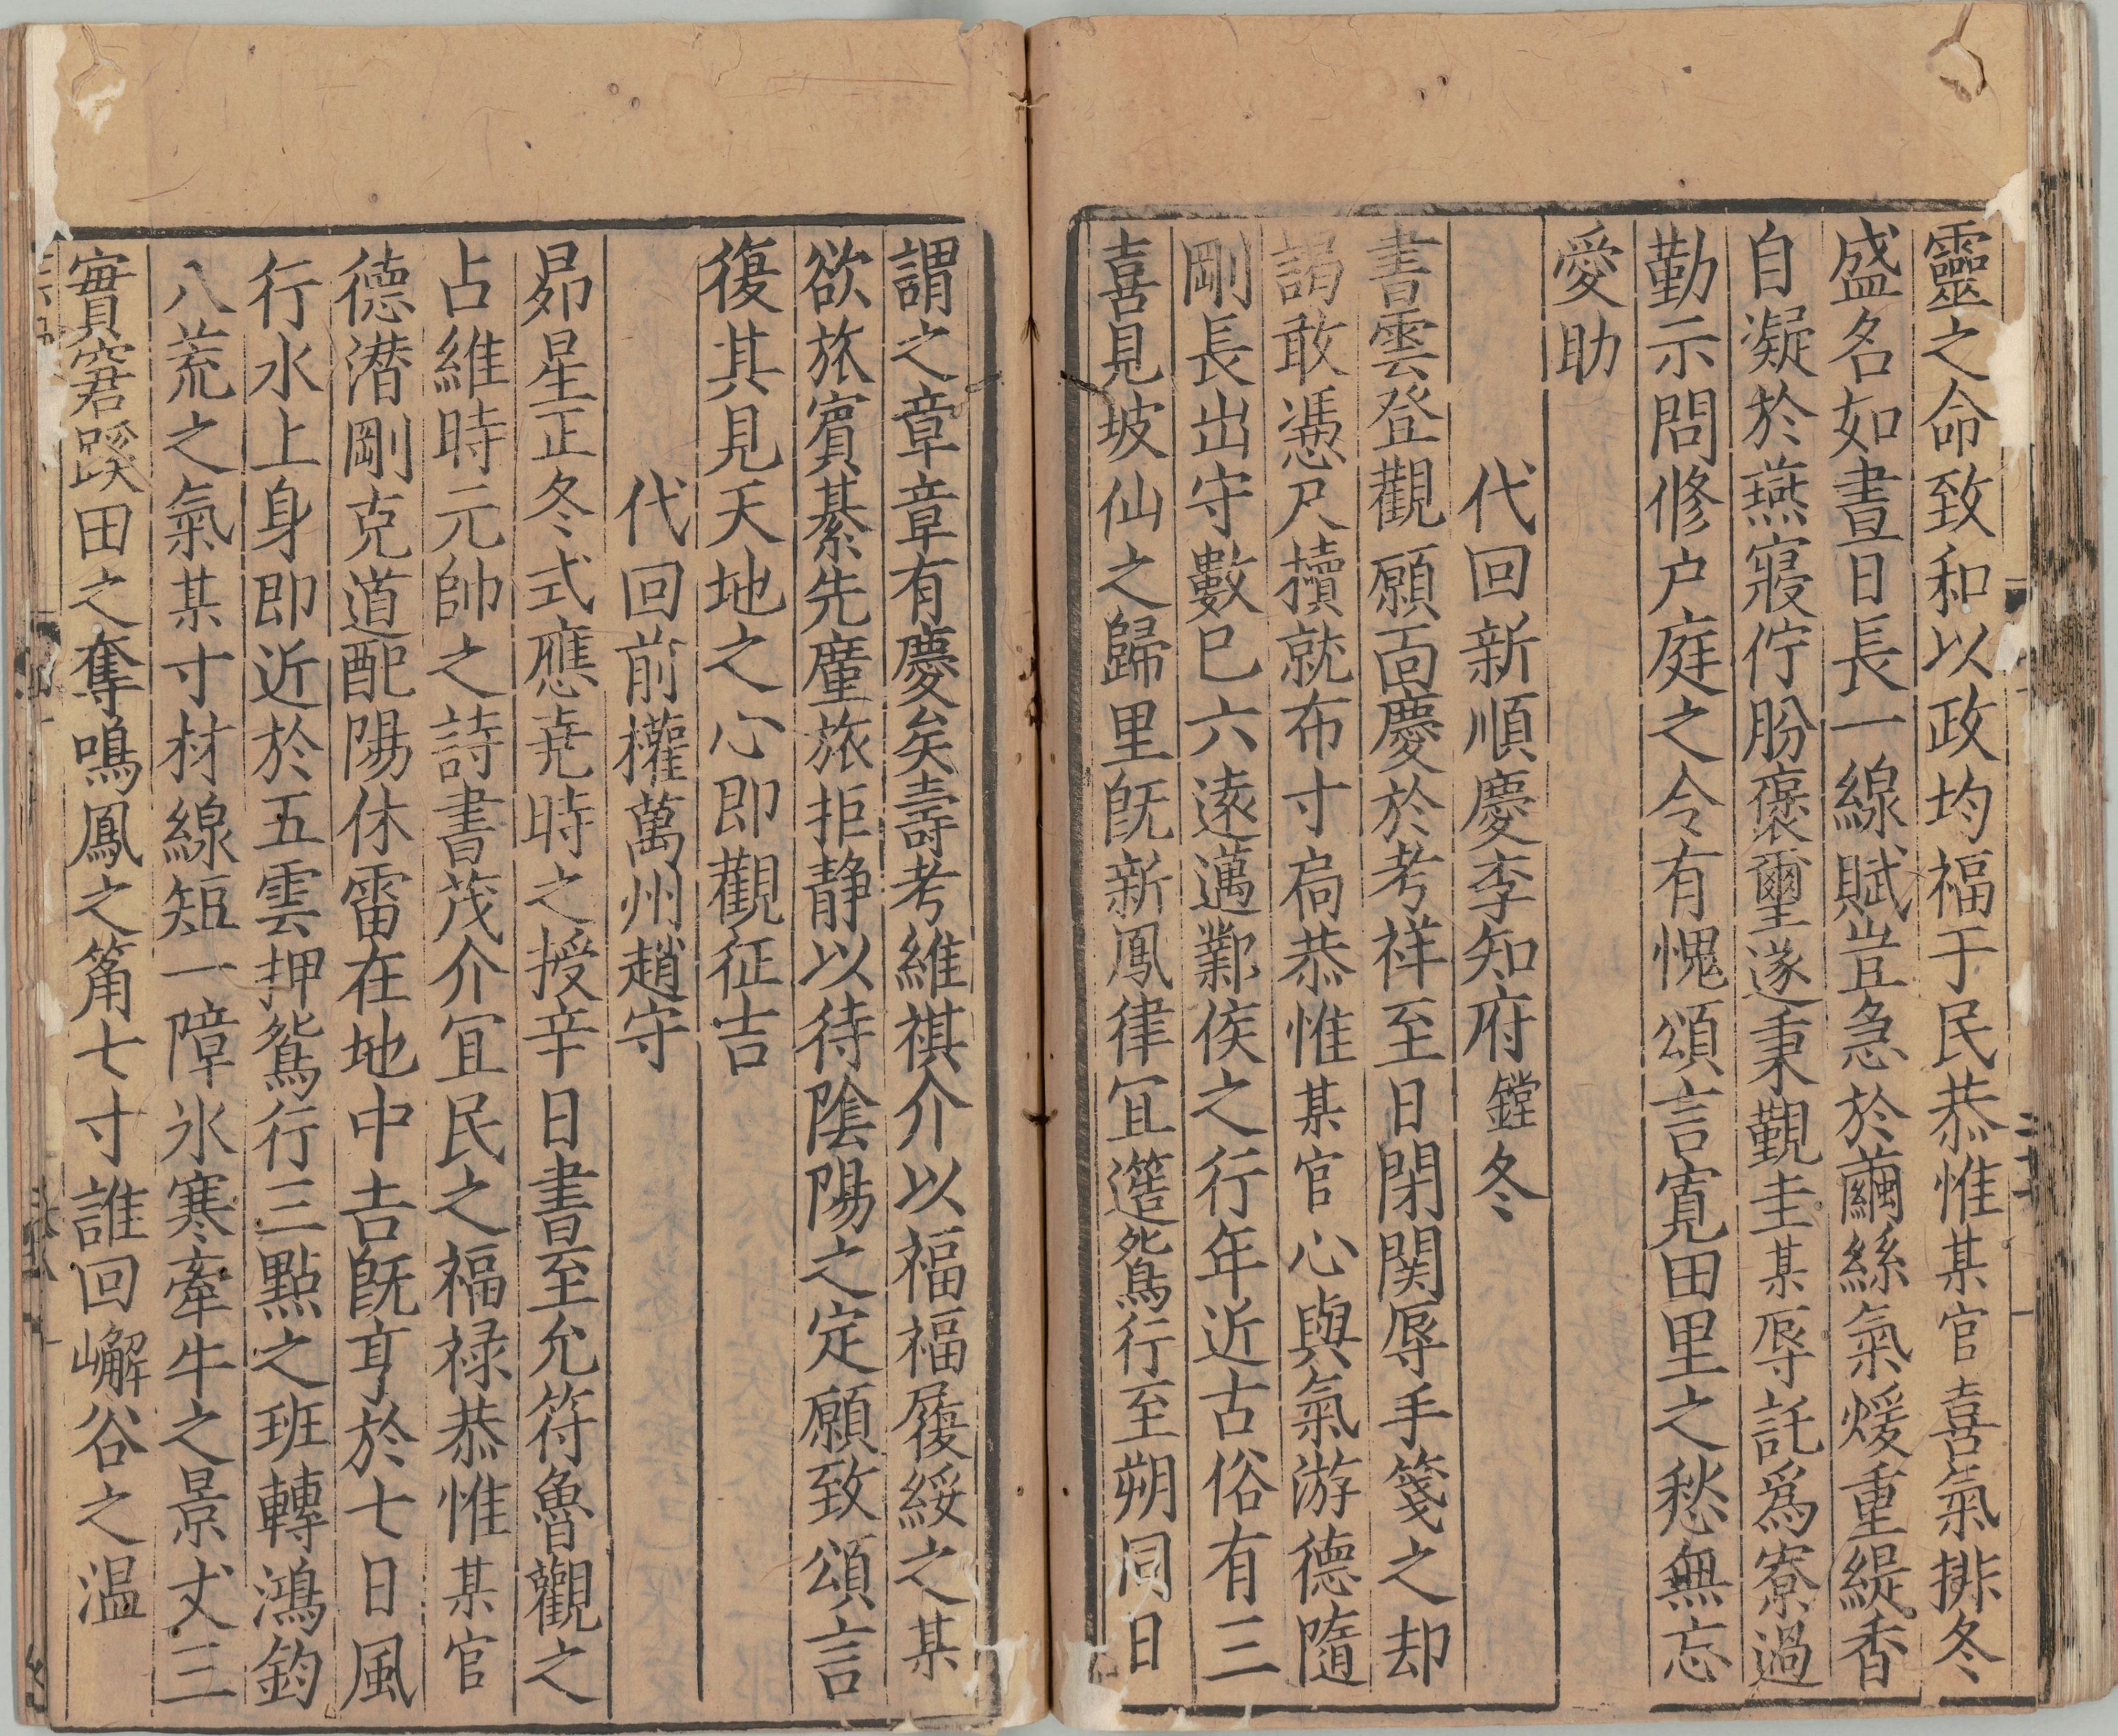 靈之命致和以政均福于民恭惟某官喜氣排冬
盛名如晝日長一線賦豈急於繭絲氣煖重緹香
自凝於燕寢佇肦褒璽遂秉覲圭某辱託爲寮過
勤示問修户庭之令有愧頌言寛田里之愁無忘
愛助
代回新順慶李知府鏜冬
書雲登觀願面慶於考祥至日閉関辱手箋之却
謁敢憑尺牘就布寸扃恭惟某官心與氣游德隨
剛長出守數巳六遠邁鄴侯之行年近古俗有三
喜見坡仙之歸里旣新鳳律冝簉鴛行至朔同日
謂之章章有慶矣壽考維祺介以福福履綏之某
欲旅賔綦先廑旅拒静以待隂陽之定願致頌言
復其見天地之心即觀征吉
代回前權萬州趙守
昴星正冬式應尭時之授辛日書至允符魯觀之
占維時元帥之詩書茂介冝民之福禄恭惟某官
德潜剛克道配陽休雷在地中吉旣亨於七日風
行水上身即近於五雲押鴛行三點之班轉鴻鈞
八荒之氣某寸材線短一障氷寒牽牛之景丈三
實窘蹊田之奪鳴鳳之筩七寸誰回嶰谷之温